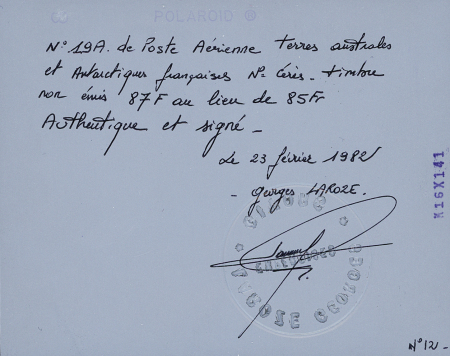 POLAROID ®
N° 19A. de Poste Aérienne terres australes
et Antarctiques françaises N° Cérès - timbre
non émis 87F au lieu de 85Fr
Authentique et signé -
Le 23 février 1982
- georges LAROZE.
M16X141
N° 12 -